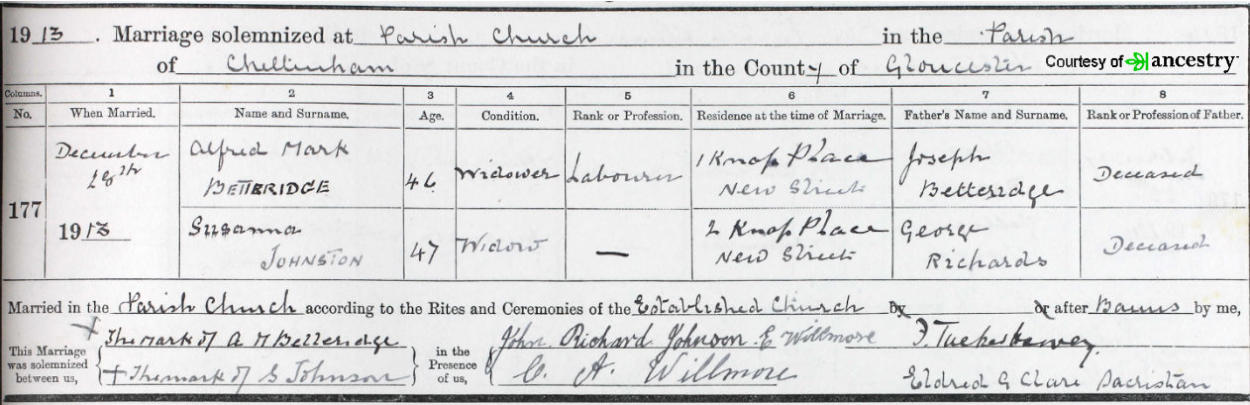 1913. Marriage solemnized at Parish Church in the Parish
of Cheltenham in the County of Gloucester Courtesy of ancestry
Columns. 1 2 3 4 5 6 7 8
No. When Married. Name and Surname. Age. Condition. Rank or Profession. Residence at the time of Marriage. Father's Name and Surname. Rank or Profession of Father.
177
December
28th
1913
Alfred Mark
BETTERIDGE
46
Widower
Labourer
1 Knap Place
New Street
Joseph
Betteridge
Deceased
Susanna
JOHNSTON
47
Widow
—
2 Knap Place
New Street
George
Richards
Deceased
Married in the Parish Church according to the Rites and Ceremonies of the Established Church by or after Banns by me,
This Marriage
was solemnized
between us,
X The mark of A M Betteridge
+ The mark of S Johnson
in the
Presence
of us,
John Richard Johnson E Willmore
C. A. Willmore
Eldred G Clare Sacristan